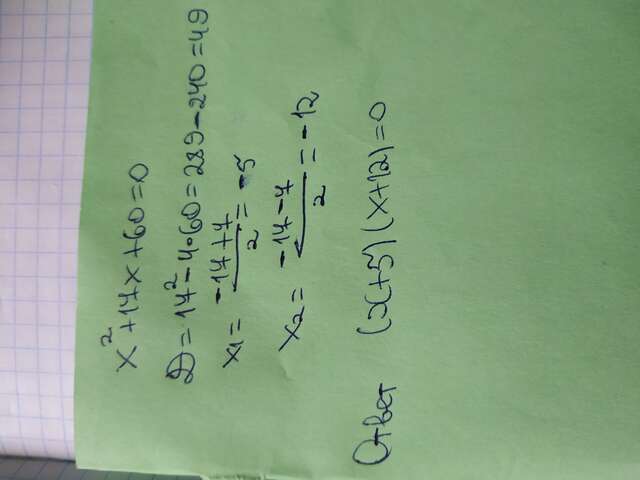 x²+17x+60=0
D=17²-4·60=289-240=49
x₁= (-17+7)/2 = -5
x₂= (-17-7)/2 = -12
Ответ (x+5)(x+12)=0